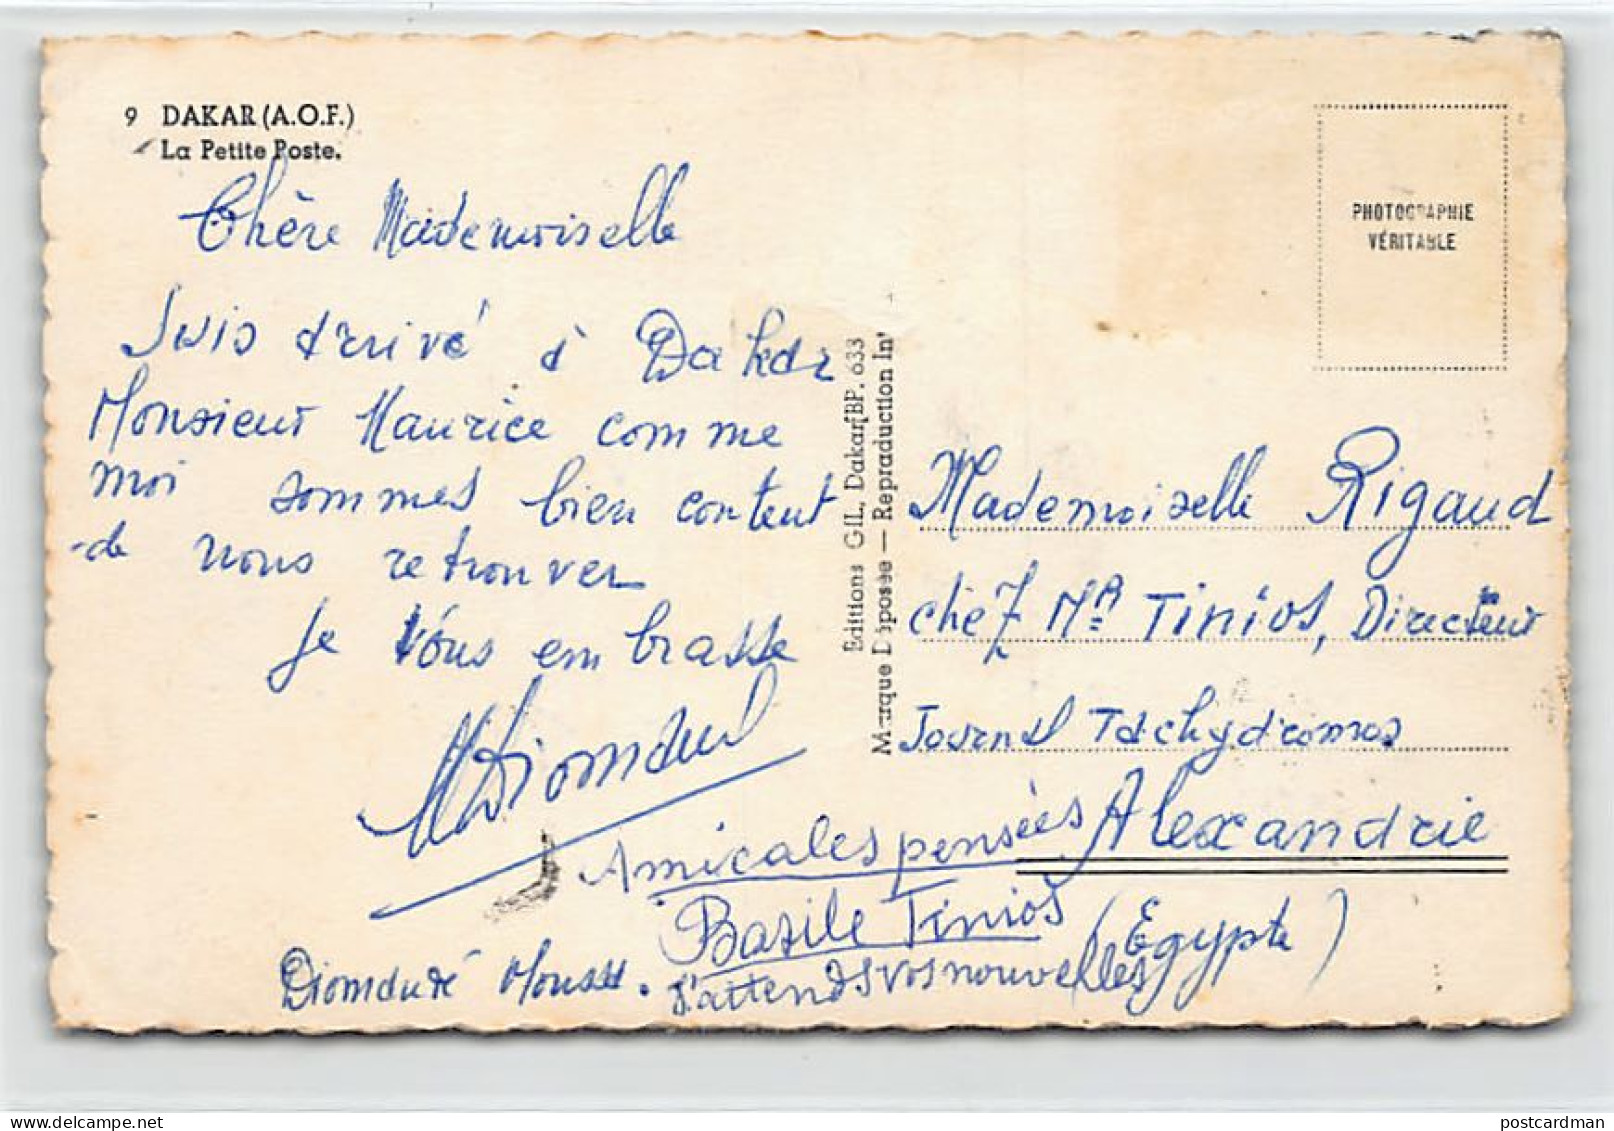 9 DAKAR (A.O.F.)
La Petite Poste.
Chère Mademoiselle
Suis arrivé à Dakar
Monsieur Maurice comme
moi sommes bien content
de nous retrouver
Je vous embrasse
Amicales pensées
Basile Tinios
J'attends vos nouvelles
Editions GIL, Dakar (BP. 633
Marque Déposée — Reproduction Int
PHOTOGRAPHIE
VÉRITABLE
Mademoiselle Rigaud
chez Mr Tinios, Directeur
Journal Tachydromos
Alexandrie
(Egypte)
postcardman